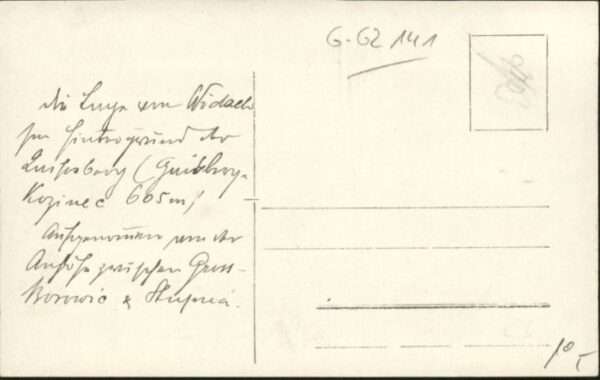 G-GZ 141
die Lage von Widach
im Hintergrund der
(Guisberg-
Kozinec 605 m)
Aufgenommen von der
Anhöhe zwischen Gross-
Borowic & Stupná.
10